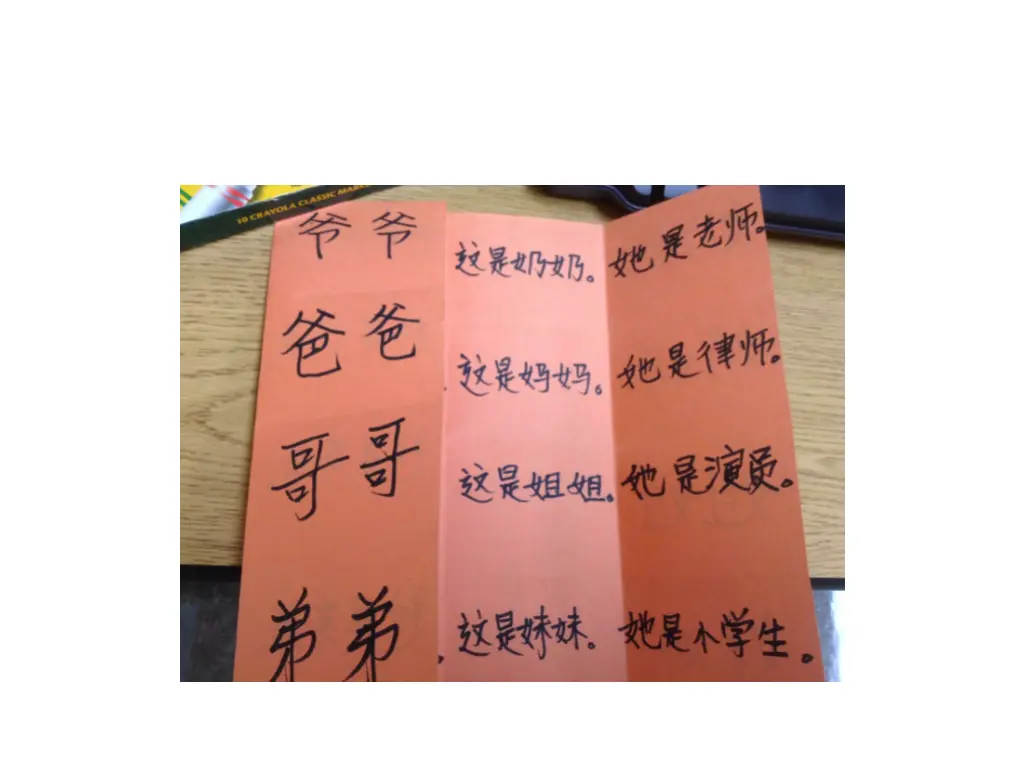 10 CRAYOLA CLASSIC MARK
爷爷 这是奶奶。 她是老师。
爸爸 这是妈妈。 她是律师。
哥哥 这是姐姐。 她是演员。
弟弟 。这是妹妹。 她是小学生。